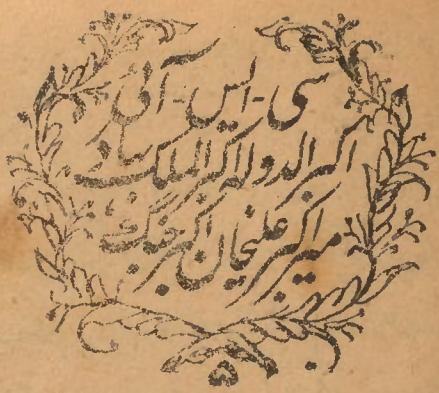 سی - ایس - آئی
اکبر الدولہ اکبر الملک بہادر
میر اکبر علیخان اکبر جنگ
۵